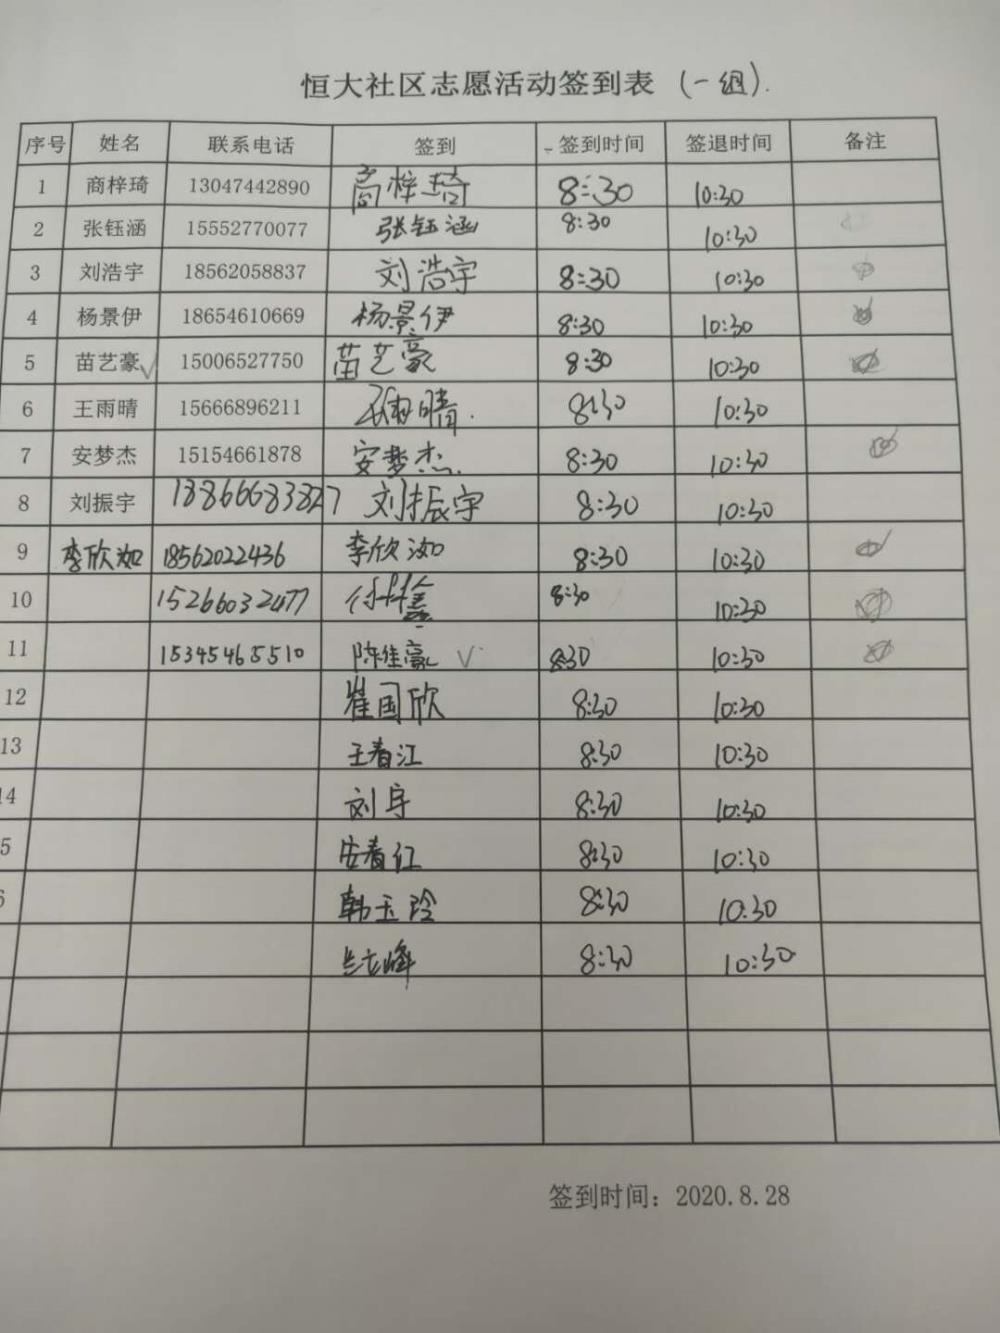 恒大社区志愿活动签到表 (一组).
序号 姓名 联系电话 签到 签到时间 签退时间 备注
1 商梓琦 13047442890 商梓琦 8:30 10:30
2 张钰涵 15552770077 张钰涵 8:30 10:30
3 刘浩宇 18562058837 刘浩宇 8:30 10:30
4 杨景伊 18654610669 杨景伊 8:30 10:30
5 苗艺豪√ 15006527750 苗艺豪 8:30 10:30
6 王雨晴 15666896211 王雨晴. 8:30 10:30
7 安梦杰 15154661878 安梦杰. 8:30 10:30
8 刘振宇 18866683827 刘振宇 8:30 10:30
9 李欣洳 18562022436 李欣洳 8:30 10:30
10 15266032477 8:30 10:30
11 15345465510 陈佳豪 √ 8:30 10:30
12 崔国欣 8:30 10:30
13 王春江 8:30 10:30
14 刘宇 8:30 10:30
5 安春红 8:30 10:30
6 韩玉玲 8:30 10:30
8:30 10:30
签到时间：2020.8.28